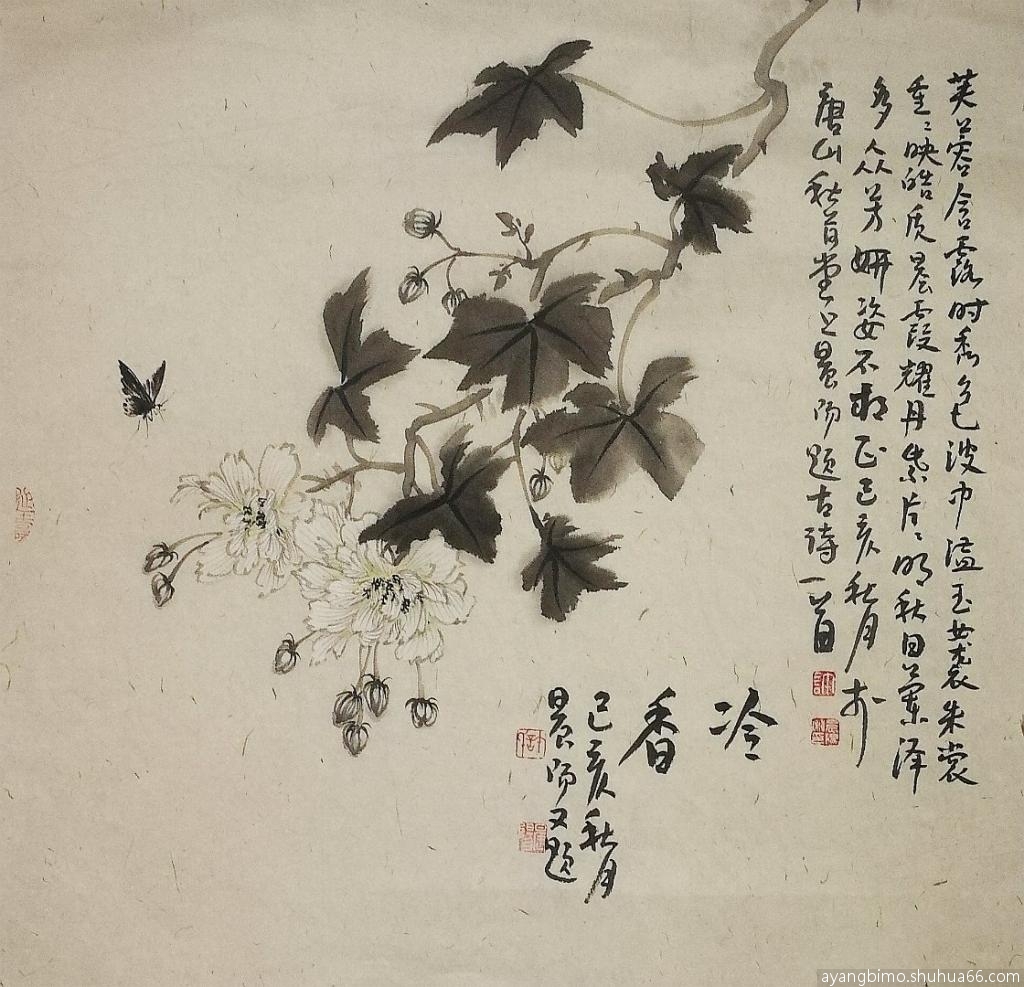 芙蓉含露时秀色波中溢玉女袭朱裳
重重映皓质晨霞耀丹紫片片明秋日兰泽
多众芳妍姿不相匹己亥秋月于
唐山秋首堂上晨师题古诗一首
冷香
己亥秋月
晨师又题
ayangbimo.shuhua66.com